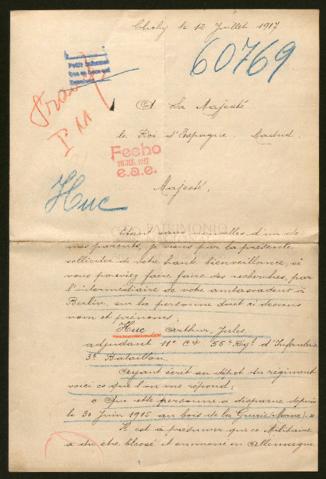 Clichy le 12 Juillet 1917
60769
Petite Informac
Fran
I M
A Sa Majesté
le Roi d'Espagne, Madrid.
Fecho
e.a.e.
Huc
Majesté,
PATRIMONIO
Etant sans nouvelles d'un de
mes parents, je viens par la présente
solliciter de votre haute bienveillance, si
vous pouviez faire faire des recherches, par
l'intermédiaire de votre ambassadeur à
Berlin, sur la personne dont ci dessous
nom et prénoms:
Huc Arthur, Jules,
adjudant 11e Cie 55e Rgt d'Infanterie
3e Bataillon.
Ayant écrit au dépôt du régiment
voici ce que l'on me répond:
"Que cette personne a disparue depuis
le 30 Juin 1915 au bois de la Grurie (Marne)."
Il est à présumer que ce Militaire
a du être blessé et emmené en Allemagne